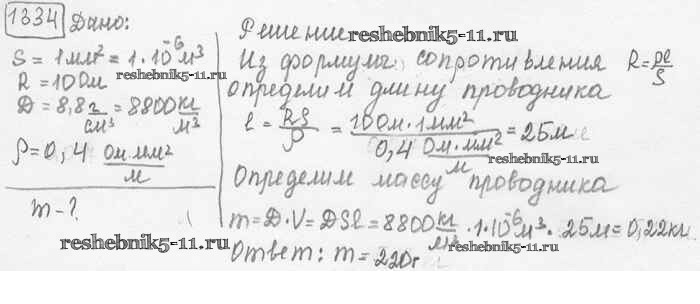 1334 Дано:
S = 1мм² = 1·10⁻⁶м³
R = 10Ом
D = 8,8 г/см³ = 8800 кг/м³
ρ = 0,4 Ом·мм²/м
m - ?
Решение
reshebnik5-11.ru
Из формулы сопротивления R = ρl/S
reshebnik5-11.ru
определим длину проводника
l = RS/ρ = 10Ом·1мм²/0,4 Ом·мм²/м = 25м
reshebnik5-11.ru
Определим массу проводника
m = D·V = DSl = 8800 кг/м³ · 1·10⁻⁶м³ · 25м = 0,22кг
reshebnik5-11.ru
reshebnik5-11.ru
Ответ: m = 220г